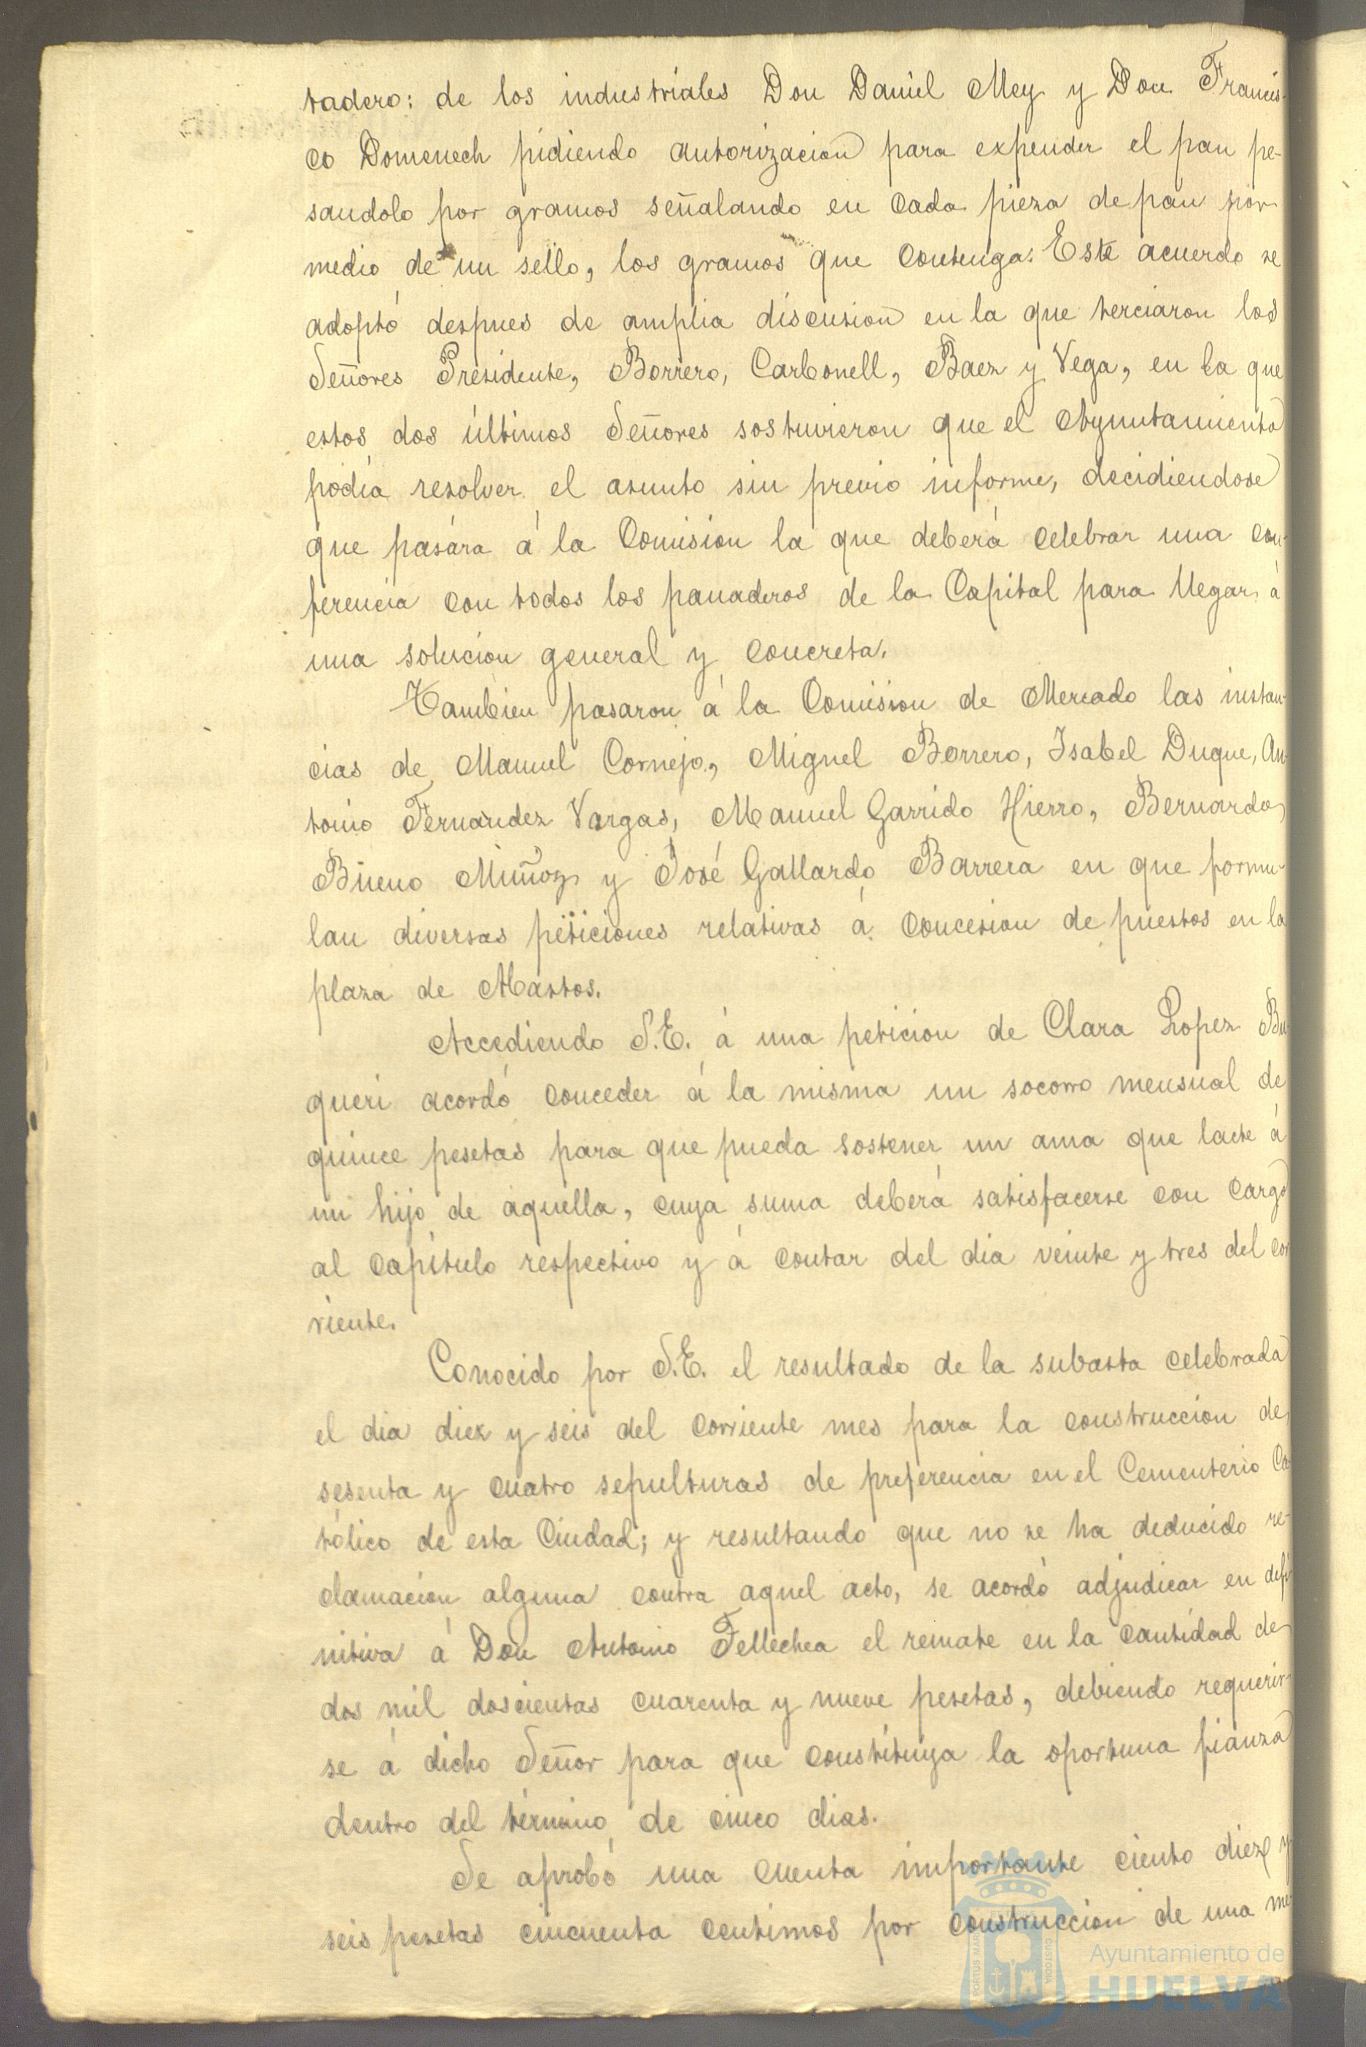 tadero: de los industriales Don Daniel Mey y Don Francis-
co Domenech pidiendo autorizacion para expender el pan pe-
sandolo por gramos señalando en cada pieza de pan por
medio de un sello, los gramos que contenga. Este acuerdo se
adoptó despues de amplia discusion en la que terciaron los
Señores Presidente, Borrero, Carbonell, Baez y Vega, en la que
estos dos últimos Señores sostuvieron que el Ayuntamiento
podia resolver el asunto sin previo informe, decidiendose
que pasára á la Comision la que deberá celebrar una con-
ferencia con todos los panaderos de la Capital para llegar á
una solucion general y concreta.
Tambien pasaron á la Comision de Mercado las instan-
cias de Manuel Cornejo, Miguel Borrero, Isabel Duque, An-
tonio Fernandez Vargas, Manuel Garrido Hierro, Bernardo
Bueno Muñoz y José Gallardo Barrera en que formu-
lan diversas peticiones relativas á concesion de puestos en la
plaza de Abastos.
Accediendo S.E. á una peticion de Clara Lopez Bu
queri acordó conceder á la misma un socorro mensual de
quince pesetas para que pueda sostener un ama que lacte á
un hijo de aquella, cuya suma deberá satisfacerse con cargo
al capítulo respectivo y á contar del dia veinte y tres del cor
riente.
Conocido por S.E. el resultado de la subasta celebrada
el dia diez y seis del corriente mes para la construccion de
sesenta y cuatro sepulturas de preferencia en el Cementerio Ca
tólico de esta Ciudad; y resultando que no se ha deducido re-
clamacion alguna contra aquel acto, se acordó adjudicar en defi
nitiva á Don Antonio Tellechea el remate en la cantidad de
dos mil doscientas cuarenta y nueve pesetas, debiendo requerir-
se á dicho Señor para que constituya la oportuna fianza
dentro del término de cinco dias.
Se aprobó una cuenta importante ciento diez y
seis pesetas cincuenta centimos por construccion de una me
Ayuntamiento de
HUELVA